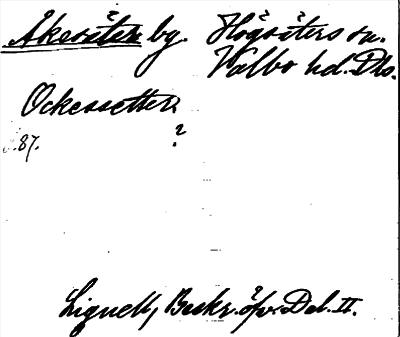 Åkersäten by. Högsäters sn.
Valbo hd. Dls.
Ockessetter.
s. 87. ?
Lignell, Beskr. öfv. Dal. II.